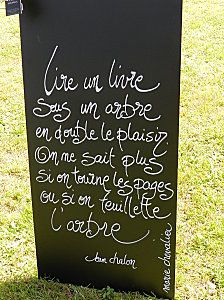 Lire un livre
sous un arbre
en double le plaisir.
On ne sait plus
si on tourne les pages
ou si on feuillette
l'arbre
Jean Chalon
marie chevalier